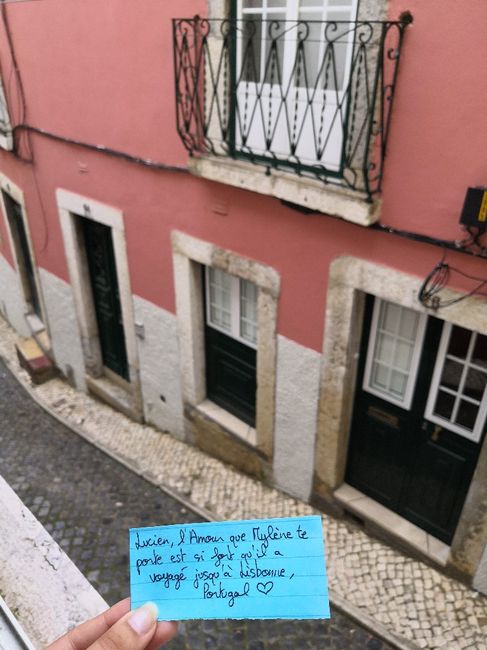 Lucien, l'Amour que Mylène te
porte est si fort qu'il a
voyagé jusqu'à Lisbonne,
Portugal ♡